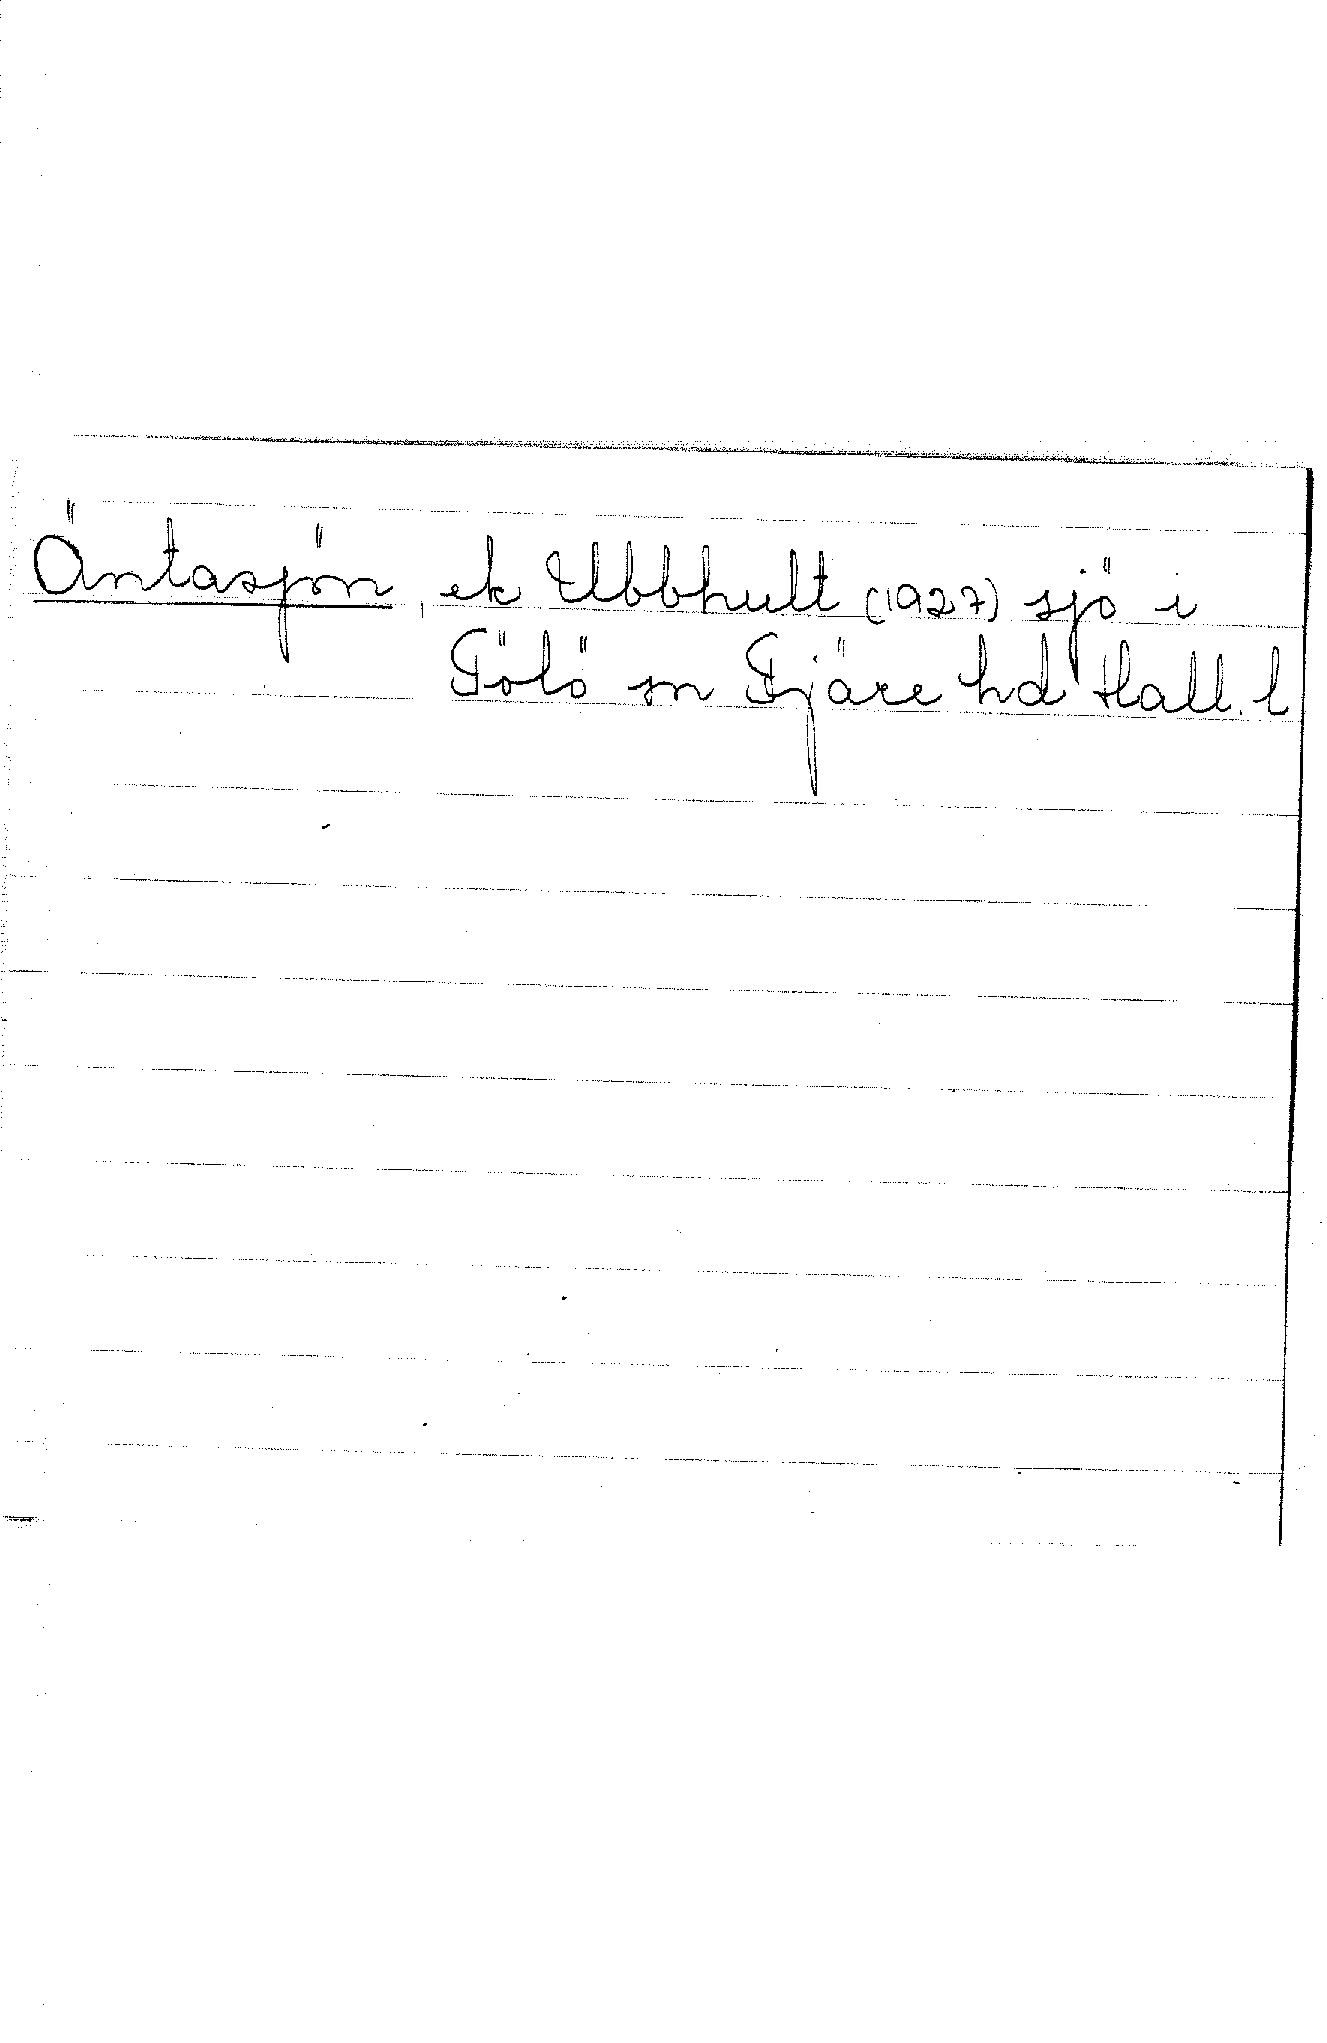 Äntasjön, ek Ubbhult (1927) sjö i
Tölö sn Fjäre hd Hall. l